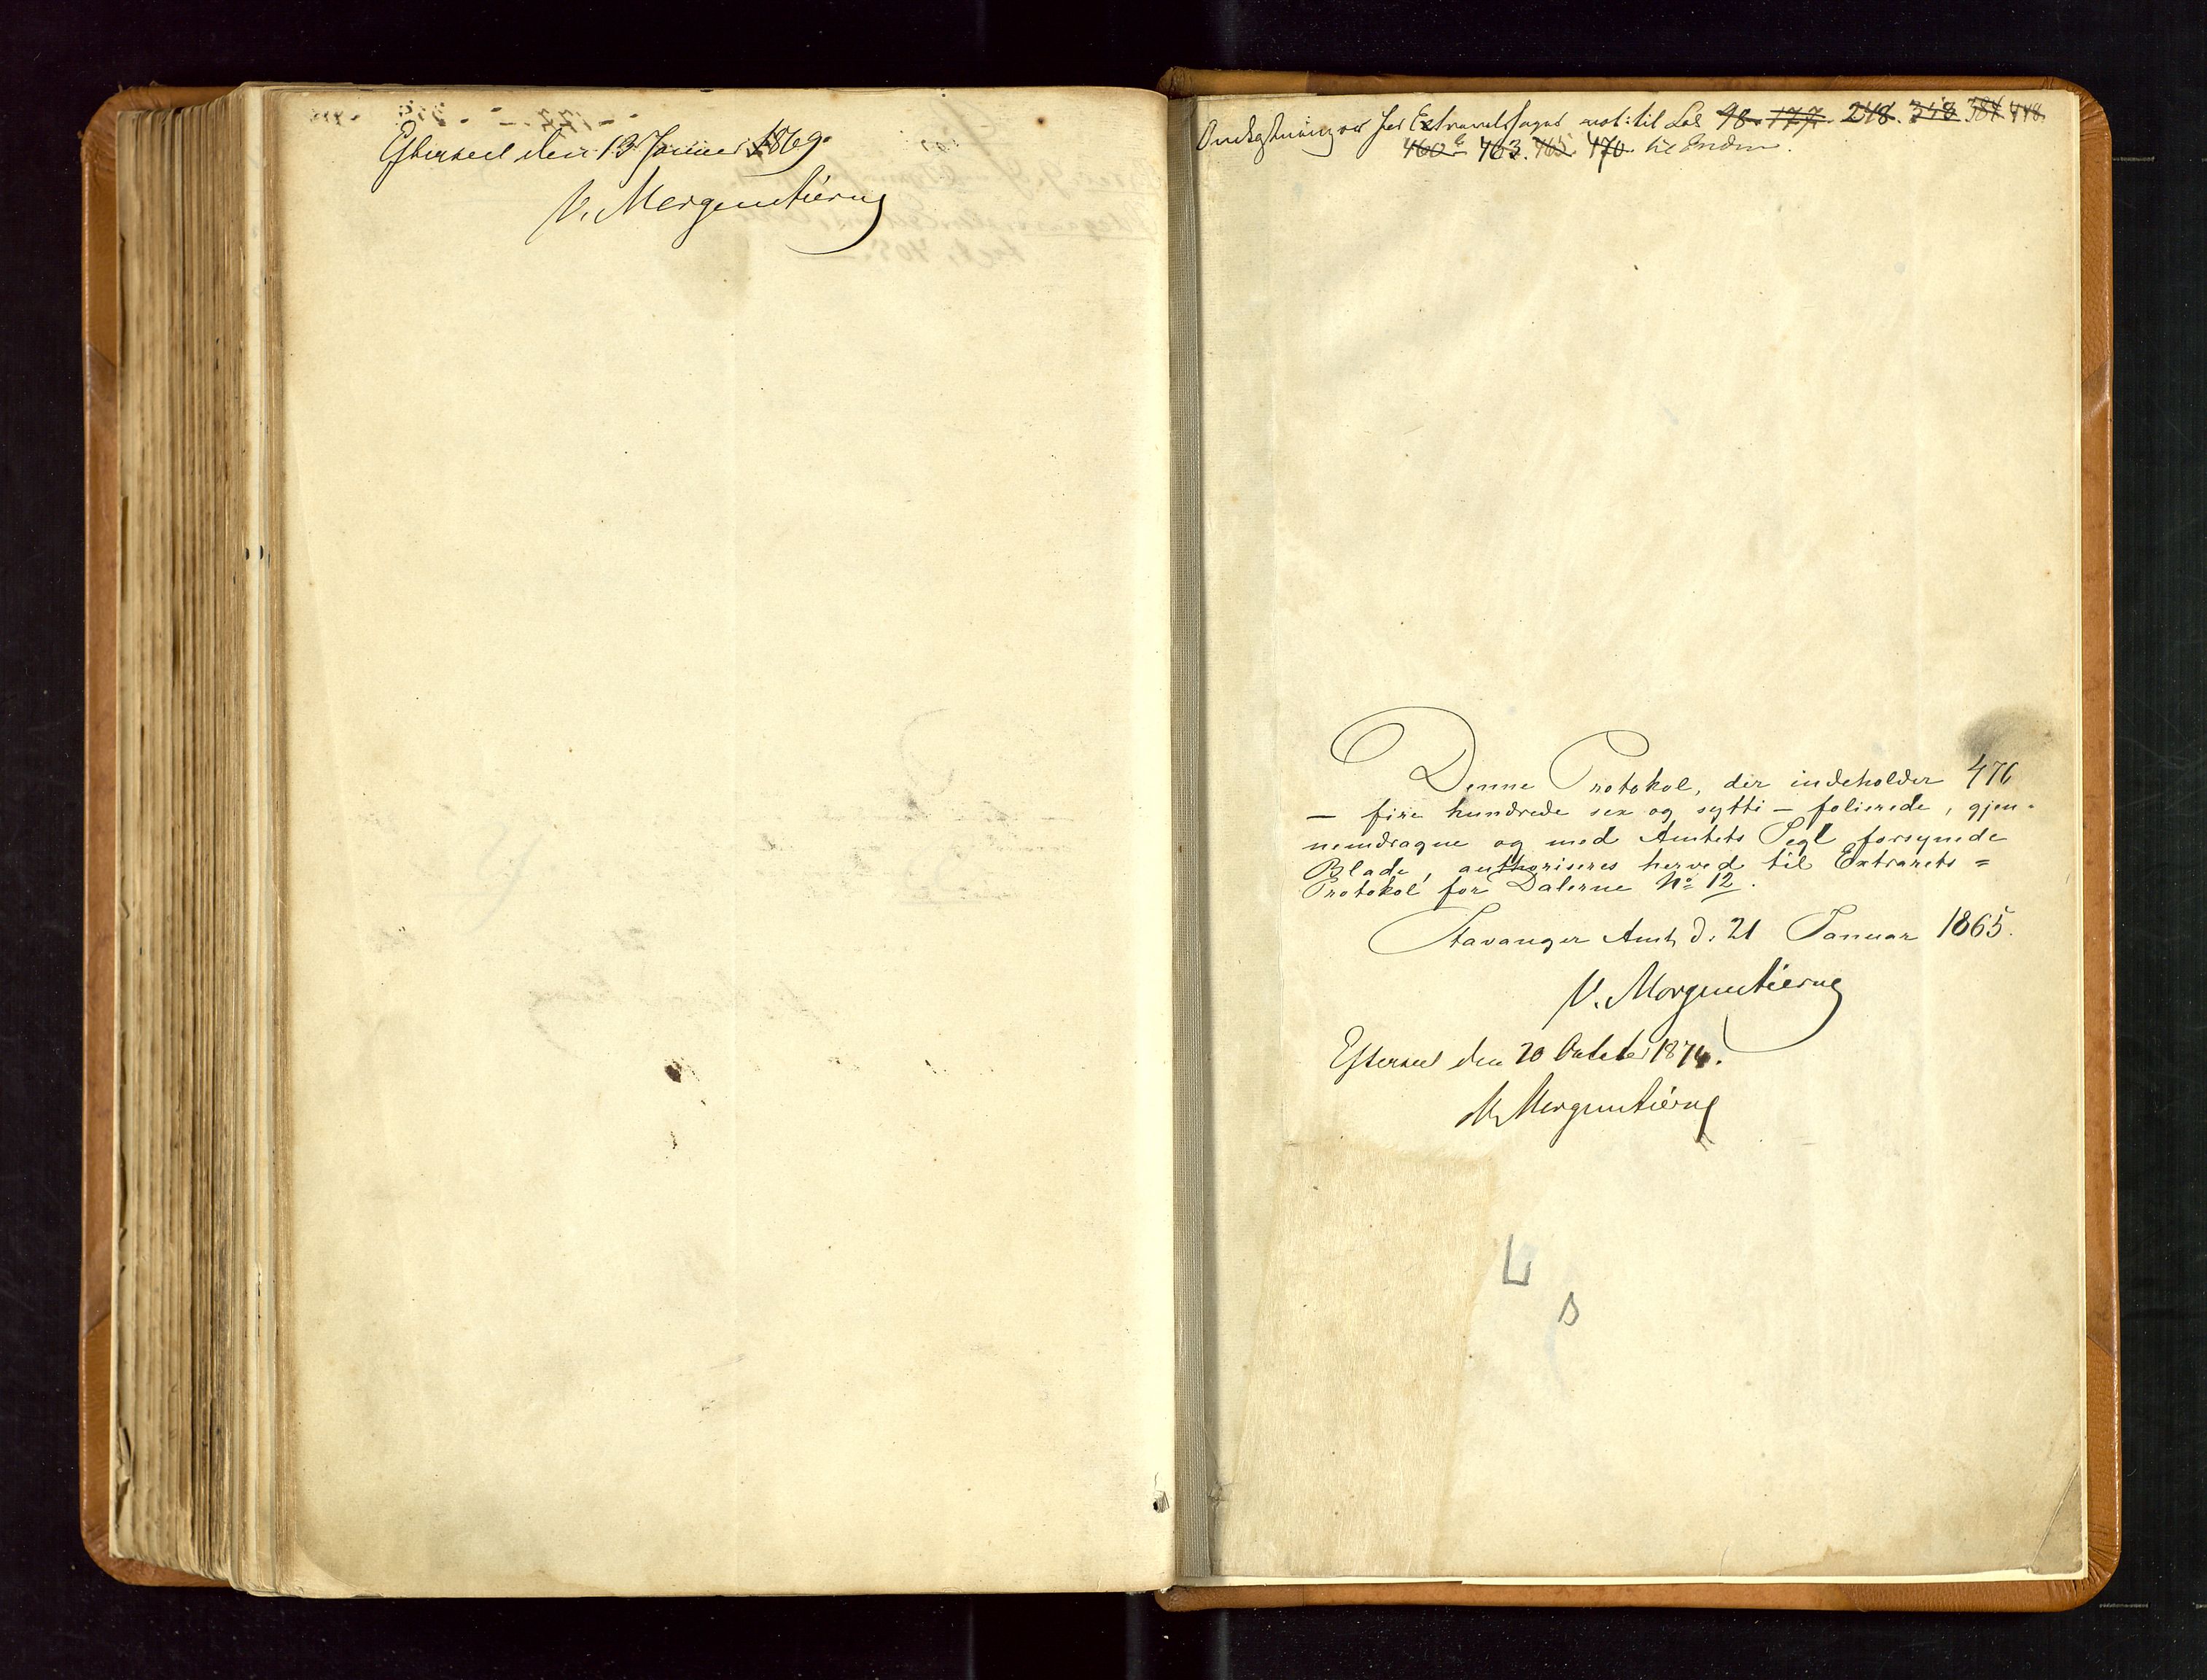 Efterseet den 13 Januar 1869.
V. Morgenstierne
for Extraretssager not: til Fol 98. 177. 248. 348 384 448.
460 b 463. 465. 470. til Enden.
Denne Protokol, der indeholder 476
— fire hundrede sex og sytti — folierede, gjen-
nemdragne og med Amtets Segl forsynede
Blade, authoriseres herved til Extrarets =
Protokol for Dalerne No 12.
Stavanger Amt, d. 21 Januar 1865.
V. Morgenstierne
Efterseet den 20 October 1874.
V. Morgenstierne